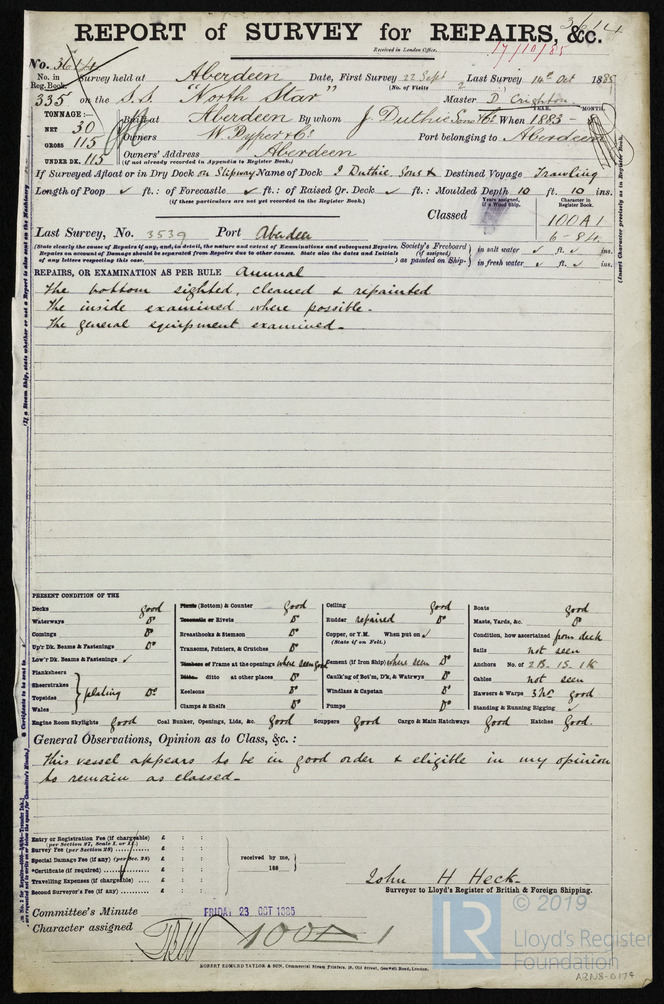 3614
REPORT of SURVEY for REPAIRS, &c.
Received in London Office,
17/10/85
No. 3614
No. in Reg. Book. Survey held at Aberdeen Date, First Survey 22 Sept Last Survey 14th Oct 1885
(No. of Visits 2
335 on the S.S. "North Star" Master D. Crighton
TONNAGE:— YEAR. MONTH.
NET 30 Built at Aberdeen By whom J Duthie Sons & Co. When 1883 -
GROSS 115 Owners W Pyper & Co. Port belonging to Aberdeen
UNDER DK. 115 Owners' Address Aberdeen
(if not already recorded in Appendix to Register Book.)
If Surveyed Afloat or in Dry Dock on Slipway Name of Dock J Duthie, Sons & Destined Voyage Trawling
Length of Poop ✓ ft.: of Forecastle ✓ ft.: of Raised Qr. Deck ✓ ft.: Moulded Depth 10 ft. 10 ins.
(if these particulars are not yet recorded in the Register Book.)
Years assigned, if a Wood Ship. Character in Register Book.
Classed 100 A 1
6-84
Last Survey, No. 3539 Port Aberdeen
(State clearly the cause of Repairs if any, and, in detail, the nature and extent of Examinations and subsequent Repairs. Repairs on account of Damage should be separated from Repairs due to other causes. State also the dates and Initials of any letters respecting this case.
Society's Freeboard (if assigned) as painted on Ship- in salt water ✓ ft. ✓ ins.
in fresh water ✓ ft. ✓ ins.
(Insert Character precisely as in Register Book.
REPAIRS, OR EXAMINATION AS PER RULE Annual
The bottom sighted, cleaned & repainted
The inside examined where possible.
The general equipment examined.
PRESENT CONDITION OF THE
Decks good
Waterways Do
Comings Do
Up'r Dk. Beams & Fastenings Do
Low'r Dk. Beams & Fastenings ✓
Planksheers
Sheerstrakes
Topsides
Wales
plating Do
Planks (Bottom) & Counter good
Treenails or Rivets Do
Breasthooks & Stemson Do
Transoms, Pointers, & Crutches Do
Timbers of Frame at the openings where seen good
Ditto. ditto at other places Do
Keelsons Do
Clamps & Shelfs Do
Ceiling good
Rudder repaired Do
Copper, or Y.M. When put on ✓
(State if on Felt.)
Cement (if Iron Ship) where seen Do
Caulk'ng of Bot'm, D'k, & Watrwys Do
Windlass & Capstan Do
Pumps Do
Boats good
Masts, Yards, &c. Do
Condition, how ascertained from deck
Sails not seen
Anchors No. of 2 B. 1 S. 1 K
Cables not seen
Hawsers & Warps good
Standing & Running Rigging ✓
Engine Room Skylights good Coal Bunker, Openings, Lids, &c. good Scuppers good Cargo & Main Hatchways good Hatches good.
General Observations, Opinion as to Class, &c.:
This vessel appears to be in good order & eligible in my opinion
to remain as classed.
Entry or Registration Fee (if chargeable) £ : :
(per Section 27, Scale I. or II.)
Survey Fee (per Section 28) £ : :
Special Damage Fee (if any) (per Sec. 28) £ : :
*Certificate (if required) £ : :
Travelling Expenses (if chargeable) £ : :
Second Surveyor's Fee (if any) £ : :
received by me,
188
John H Heck.
Surveyor to Lloyd's Register of British & Foreign Shipping.
Committee's Minute FRIDAY 23 OCT 1885
Character assigned 100 A 1
ROBERT EDMUND TAYLOR & SON, Commercial Steam Printers, 19, Old Street, Goswell Road, London.
© 2019
LR
Lloyd's Register
Foundation
ABN8-0174